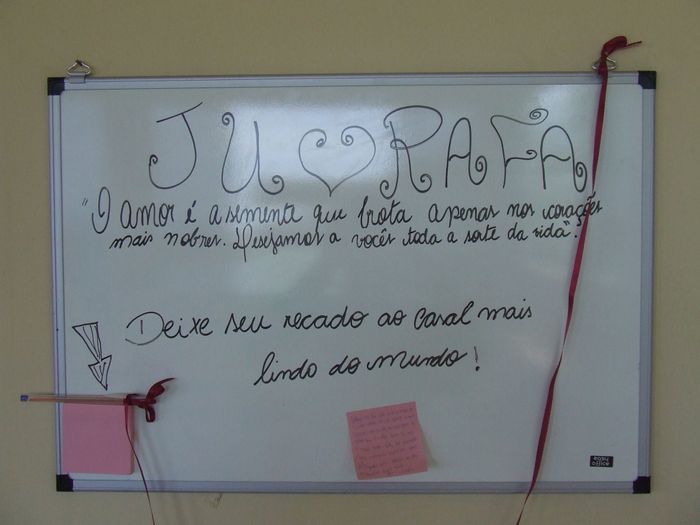 JU ♡ RAFA
"O amor é a semente que brota apenas nos corações
mais nobres. Desejamos a vocês toda a sorte da vida".
Deixe seu recado ao casal mais
lindo do mundo!
easy
office